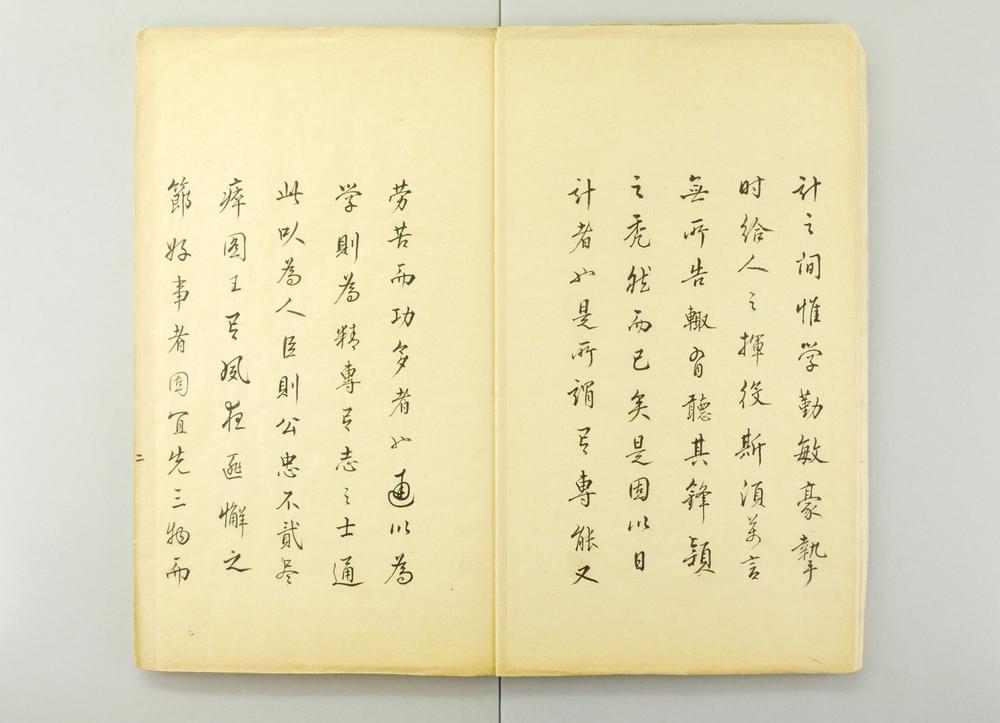 计之間惟学勤敏豪摯
时给人之揮役斯須萬言
無所告輙有聽其鋒穎
之秃然而已矣是固以日
计者如是所謂足專能又
劳苦而功多者如通以為
学則為精專足志之士通
此以為人臣則公忠不貳尽
瘁国王足夙夜匪懈之
節好事者固宜先三物而
二